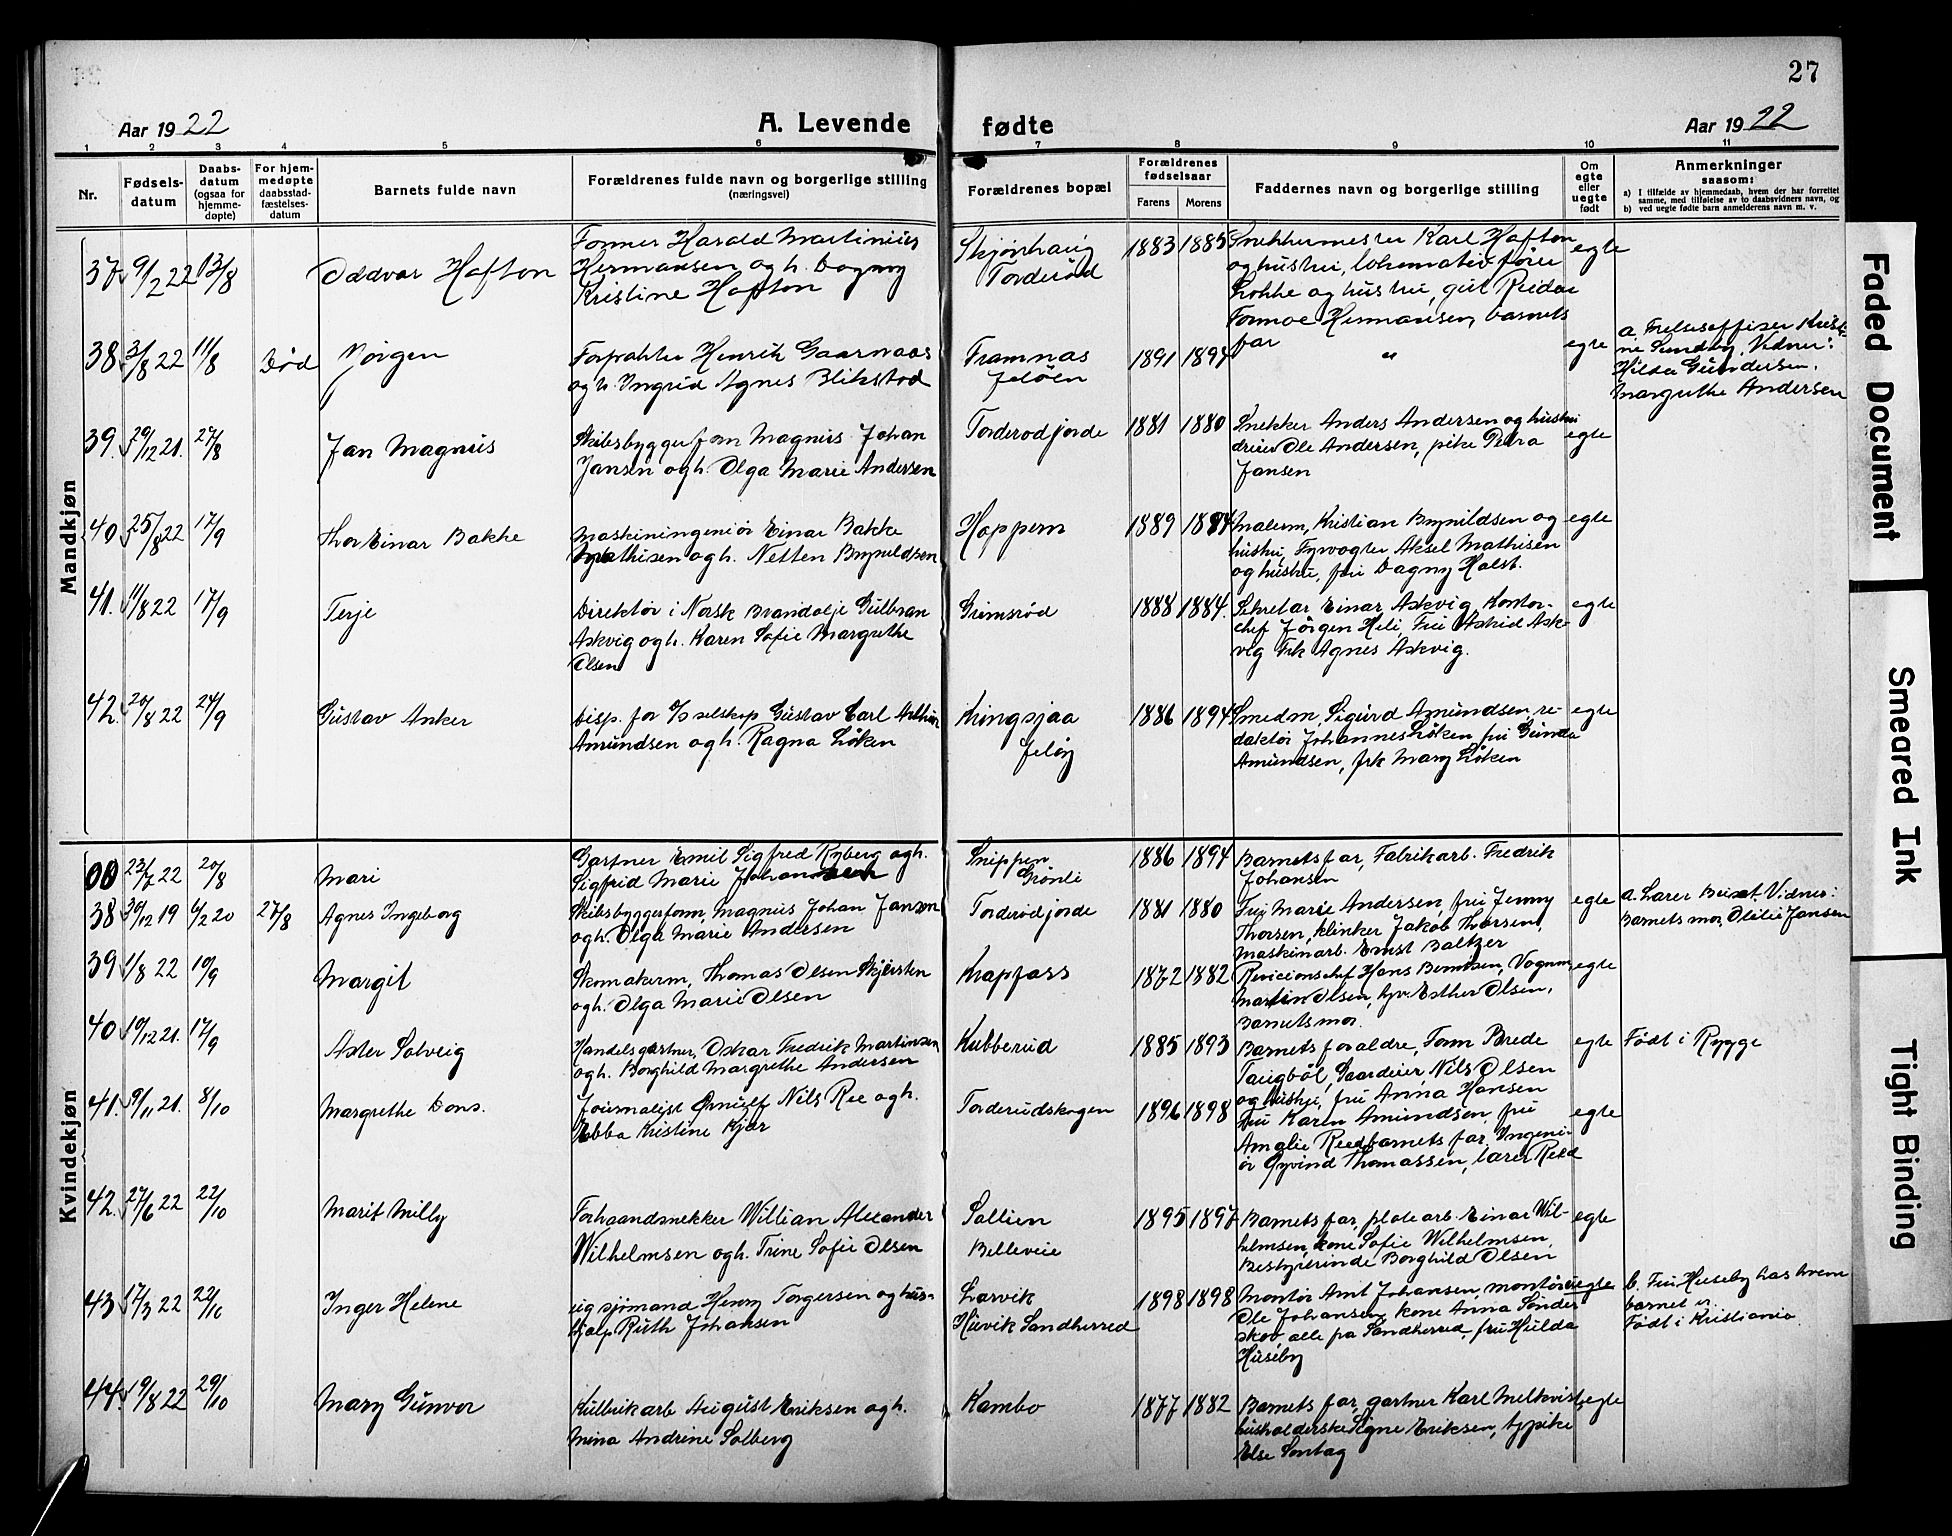 27
Aar 1922
A. Levende
fødte
Aar 1922
1 2 3 4 5 6 7 8 9 10 11
Nr.
Fødsels-
datum
Daabs-
datum
(ogsaa for
hjemme-
døpte)
For hjem-
medøpte
daabsstad-
fæstelses-
datum
Barnets fulde navn
Forældrenes fulde navn og borgerlige stilling
(næringsvei)
Forældrenes bopæl
Forældrenes
fødselsaar
Farens
Morens
Faddernes navn og borgerlige stilling
Om
egte
eller
uegte
født
Anmerkninger
saasom:
a) I tilfælde av hjemmedaab, hvem der har forrettet
samme, med tilføielse av to daabsvidners navn, og
b) ved uegte fødte barn anmelderens navn m. v.
Mandkjøn
37 9/2 22 13/8
Oddvar Hafton
Former Harald Martinius
Hermansen og h. Dagny
Kristine Hafton
Skjønhaug
Torderød
1883 1885
Snekkermester Karl Hafton
og hustru, lokomotivfører
Løkke og hustru, gut Reidar
Formoe Hermansen, barnets
far
egte
38 3/8 22 11/8 Død
Jörgen
Forpakter Henrik Gaarnaas
og h. Ingrid Agnes Blikstad
Framnas
Jelöen
1891 1894
"
egte
a. Frelsesoffiser Kristi-
ne Sundby, Vidner:
Hilda Gundersen.
Margrethe Andersen
39. 29/12 21. 27/8
Jan Magnus
Skibsbyggerform Magnus Johan
Jansen og h. Olga Marie Andersen
Torderodjorde
1881 1880
Snekker Anders Andersen og hustru
dreier Ole Andersen, pike Petra
Jansen
egte
40 25/8 22 17/9
Thor Einar Bakke
Maskiningeniör Einar Bakke
Mathisen og h. Netten Brynildsen
Hoppern
1889 1884
Malerm, Kristian Brynildsen og
hustru, Fyrvogter Aksel Mathisen
og hustru, fru Dagny Holst.
egte
41. 11/8 22 17/9
Terje
Direktör i Norsk Brandolje Gulbran
Askvig og h. Karen Sofie Margrethe
Olsen
Grimsröd
1888 1884.
Sekretar Einar Askvig, Kontor-
chef Jörgen Heli, Fru Astrid Ask-
vig Frk Agnes Askvig.
egte
42. 20/8 22 24/9
Gustav Anker
Disp. for o/s selskap Gustav Carl Arthur
Amundsen og h. Ragna Löken
Kringsjaa
Jelöy
1886 1894
Smedm, Sigurd Amundsen, re-
daktör Johannes Löken fru Gunda
Amundsen, frk Mary Löken
egte
Kvindekjøn
23/7 22 20/8
Mari
Gartner Emil Sigfred Ryberg og h.
Sigfrid Marie Johansen
Snippen
Grönli
1886 1894
Barnets far, Fabrikarb. Fredrik
Johansen
38 30/12 19 6/2 20 27/8
Agnes Ingeborg
Skibsbyggerform, Magnus Johan Janson
og h. Olga Marie Andersen
Torderödjorde
1881 1880
Fru Marie Andersen, fru Jenny
Thorsen, klinker Jakob Thorsen,
maskinarb. Ernst Baltzer
egte
Barnets mor, Otilie Jansen
39 1/8 22 10/9
Margit
Skomakerm, Thomas Olsen Skjersten
og h. Olga Marie Olsen
Krapfoss
1872 1882
Revicionschef Hans Berntsen, Vognm
Martin Olsen, hjv. Esther Olsen,
Barnets mor.
egte
40 10/12 21. 17/9
Aster Solveig
Handelsgartner, Oskar Fredrik Martinsen
og h. Borghild Margrethe Andersen
Kubberud
1885 1893
Barnets foraldre, Form Brede
Taugböl, Gaardeier Nils Olsen
og hustru, fru Anna Hansen
egte
Födt i Rygge
41. 9/11 21. 8/10
Margrethe Dons.
Journalist Ornulf Nils Ree og h.
Ebba Kristine Kjær
Torderudskogen
1896 1898
Fru Karen Amundsen, fru
Amalie Ree, barnets far, Ingeni-
ör Öyvind Thomassen, lærer Reed
egte
42. 27/6 22 22/10
Marit Milly
Forhaandsnekker Willian Alexander
Wilhelmsen og h. Trine Sofie Olsen
Sollien
Belleveie
1895 1897
Barnets far, platearb. Einar Wil-
helmsen, kone Sofie Wilhelmsen,
Bestyrerinde Borghild Olsen
egte
43 17/3 22 22/10
Inger Helene
ug sjömand Henry Torgersen og hus-
hjælp Ruth Johansen
Larvik
Huvik Sandherred
1898 1898
Montör Arnt Johansen, montör
Ole Johansen, kone Anna Sönder
skov, alle pa Sandherred, fru Hulda
Huseby
uegte
b. Fru Huseby hos hvem
barnet er
Födt i Kristiania
44. 19/8 22 29/10
Mary Gunvor
Kulbrikarb August Eriksen og h.
Mina Andrine Solberg
Kambo
1877 1882
Barnets far, gartner Karl Melkvist,
husholderske Signe Eriksen, tjpike
Else Sontag
egte
Faded Document
Smeared Ink
Tight Binding